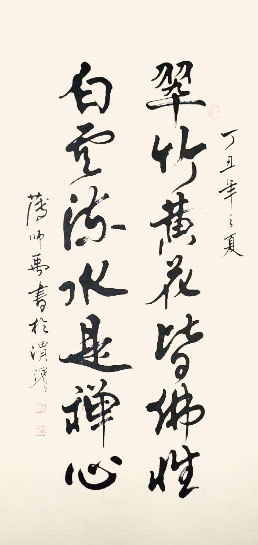 丁丑年之夏
翠竹黄花皆佛性
白雲流水是禪心
書於渭濱